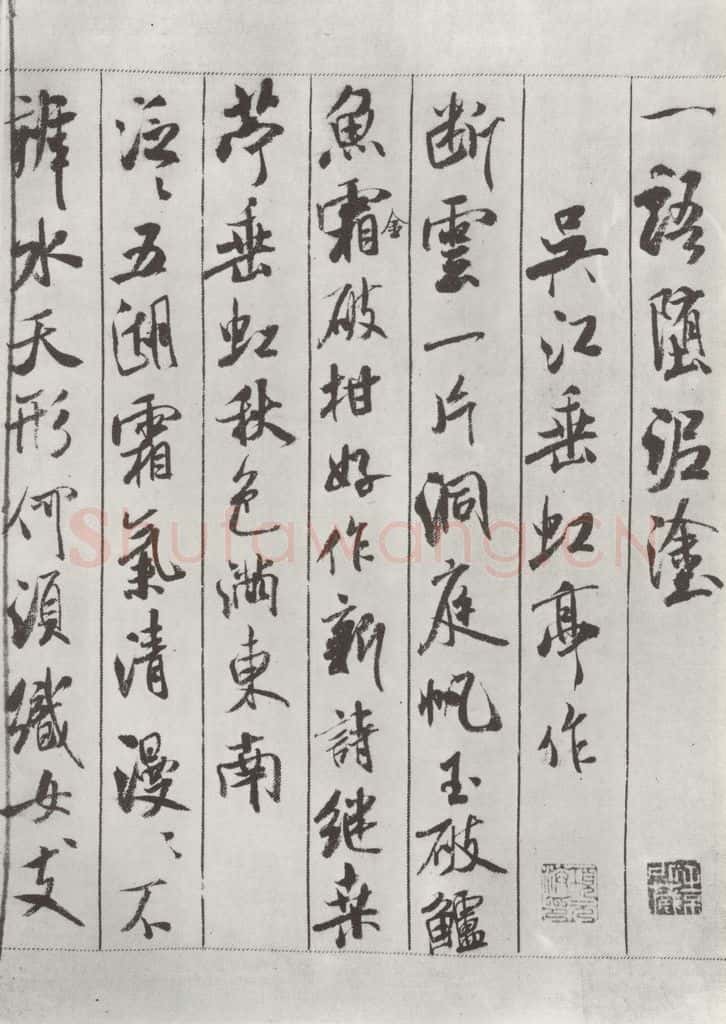 一語堕泥塗
吳江垂虹亭作
断雲一片洞庭帆玉破鱸
魚霜金破柑好作新詩継桒
苧垂虹秋色満東南
泛〻五湖霜氣清漫〻不
辨水天形何須織女支
Shufawang.CN